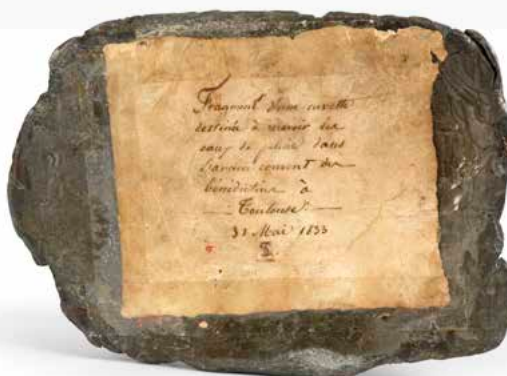 Fragment d'une cuvette
destinée à recevoir les
eaux de pluie dans
l'ancien couvent des
bénédictins à
Toulouse
31 Mai 1833